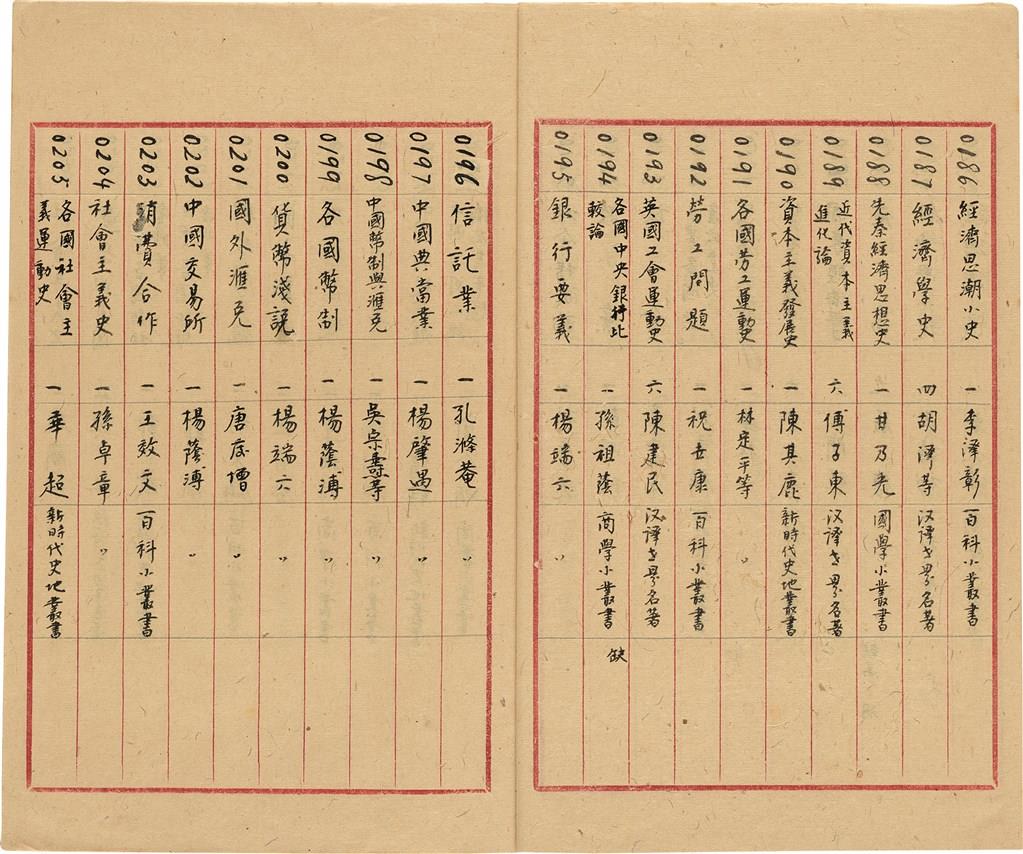 0186 經濟思潮小史 一 李澤彰 百科小叢書
0187 經濟學史 四 胡澤等 汉译世界名著
0188 先秦經濟思想史 一 甘乃光 國學小叢書
0189 近代資本主義進化論 六 傅子東 汉译世界名著
0190 資本主義發展史 一 陳其鹿 新時代史地叢書
0191 各國勞工運動史 一 林定平等 〃
0192 勞工問題 一 祝世康 百科小叢書
0193 英國工會運動史 六 陳建民 汉译世界名著
0194 各國中央銀行比較論 一 孫祖蔭 商學小叢書 缺
0195 銀行要義 一 楊端六 〃
0196 信託業 一 孔滌菴 〃
0197 中國典當業 一 楊肇遇 〃
0198 中國幣制與滙兌 一 吳宗燾等 〃
0199 各國幣制 一 楊蔭溥 〃
0200 貨幣淺説 一 楊端六 〃
0201 國外滙兌 一 唐慶增 〃
0202 中國交易所 一 楊蔭溥 〃
0203 消費合作 一 王效文 百科小叢書
0204 社會主義史 一 孫卓章 〃
0205 各國社會主義運動史 一 華超 新時代史地叢書